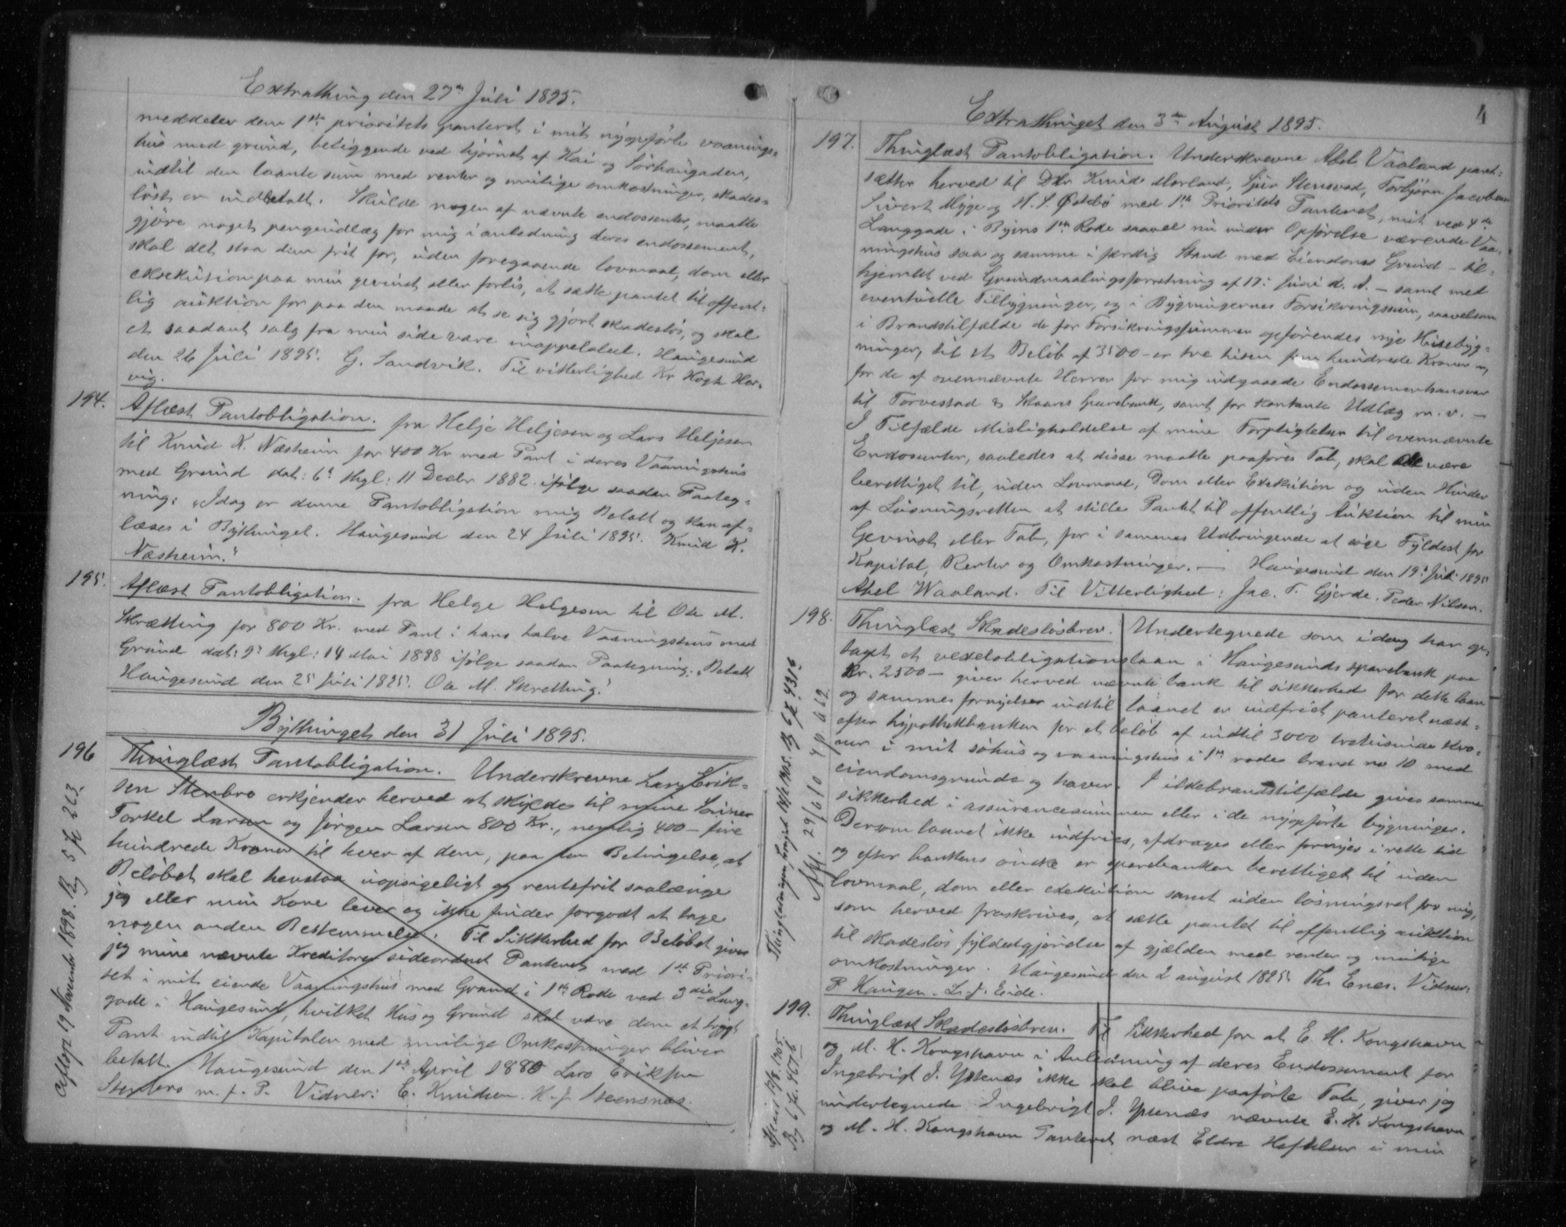 Extrathing den 27de Juli 1895.
meddeler dem 1ste prioritets panteret i mit nyopførte vaanings-
hus med grund, beliggende ved hjørnet af Kai og Sørhaugaden,
indtil den laante sum med renter og mulige omkostninger, skades-
løst er indbetalt. Skulde nogen af nævnte endossenter, maatte
gjøre noget pengeudlæg for mig i anledning deres endossement,
skal det staa dem frit for, uden foregaaende lovmaal, dom eller
eksekution paa min gevinst eller forlis, at sætte pantet til offent-
lig auktion for paa den maade at se sig gjort skadesløs, og skal
et saadant salg fra min side være inappelabelt. Haugesund
den 26 Juli 1895. G. Sandvik. Til vitterlighed Kr Høgh Hor-
vig.
194. Aflæst Pantobligation. fra Helje Heljesen og Lars Heljesen
til Knud K. Næsheim for 400 Kr med Pant i deres Vaaningshus
med Grund dat: 6t thgl: 11 Decbr 1882 ifølge saadan Paateg-
ning: „Idag er denne Pantobligation mig Betalt og kan af-
læses i Bythinget. Haugesund den 24 Juli 1895. Knud K.
Næsheim."
195. Aflæst Pantobligation. fra Helge Helgesen til Ole M.
Skrætting for 800 Kr. med Pant i hans halve Vaaningshus med
Grund dat: 9t thgl: 14 Mai 1888 ifølge saadan Paategning: „Betalt
Haugesund den 25 Juli 1895. Ole M. Skretting."
Bythinget den 31 Juli 1895.
196 Thinglæst Pantobligation. Underskrevne Lars Erik-
sen Stenbro erkjender herved at skylde til mine Sønner
Torkel Larsen og Jørgen Larsen 800 Kr., nemlig 400 – fire
hundrede Kroner til hver af dem, paa den Betingelse, at
Beløbet skal henstaa uopsigeligt og rentefrit saalænge
jeg eller min Kone lever og ikke finder forgodt at tage
nogen anden Bestemmelse. Til Sikkerhed for Beløbet giver
jeg mine nævnte Kreditorer sideordnet Panteret med 1ste Priori-
tet i mit eiende Vaaningshus med Grund i 1ste Rode ved 3die Lang-
gade i Haugesund, hvilket Hus og Grund skal være dem et trygt
Pant indtil Kapitalen med mulige Omkostninger bliver
betalt. Haugesund den 1ste April 1880 Lars Eriksen
Stenbro m. f. P. Vidner: E. Knudsen. H. J. Steensnæs.
Aflyst 19 Novembr 1898. Bg 5 fol 263
4
Extrathinget den 3de August 1895.
197. Thinglæst Pantobligation. Underskrevne Abel Vaaland pant-
sætter herved til DHr Knud Morland, Sjur Stensvad, Torbjørn Jacobsen
Sivert Myge og H. S. Østebø med 1ste Prioritets Panteret, mit ved 4de
Langgade i Byens 1ste Rode saavel nu under Opførelse værende Vaa-
ningshus som og samme i færdig Stand med Eiendoms Grund – til-
hjemlet ved Grundmaalingsforretning af 17: Juni d. A. – samt med
eventuelle Tilbygninger, og i Bygningernes Forsikringssum, saavelsom
i Brandstilfælde de for Forsikringssummen opførendes nye Husebyg-
ninger, til et Beløb af 3500 – er tre tusen fem hundrede Kroner –
for de af ovennævnte Herrer for mig udgaaede Endossementsansvar
til Torvestad & Skaare Sparebank, samt for kontante Udlæg m. v. –
I Tilfælde Misligholdelse af mine Forpligtelser til ovennævnte
Endossenter, saaledes at disse maatte paaføres Tab, skal de være
berettiget til, uden Lovmaal, Dom eller Exekution og uden Hinder
af Løsningsretten at stille Pantet til offentlig Auktion til min
Gevinst eller Tab, for i sammes Udbringende at søge Fyldest for
Kapital, Renter og Omkostninger. – Haugesund den 19: Juli 1895
Abel Waaland. Til Vitterlighed: Jac. T. Gjerde. Peder Nilsen.
198. Thinglæst Skadesløsbrev. Undertegnede som idag har op-
taget et vexelobligationslaan i Haugesunds sparebank paa
Kr. 2500 – giver herved nævnte bank til sikkerhed for dette laan
og sammes fornyelser indtil laanet er indfriet panteret næst-
efter hypothekbanken for et beløb af indtil 3000 tretusinde kro-
ner i mit søhus og vaaningshus i 1ste rodes brand no 10 med
eiendomsgrunde og haver. I ildebrandstilfælde gives samme
sikkerhed i assurancesummen eller i de nyopførte bygninger.
Dersom laanet ikke indfries, afdrages eller fornyes i rette tid
og efter bankens ønske er sparebanken berettiget til uden
lovmaal, dom eller exekution samt uden løsningsret for mig,
som herved fraskrives, at sætte pantet til offentlig auktion
til skadesløs fyldestgjørelse af gjælden med renter og mulige
omkostninger. Haugesund den 2 august 1895. Th. Enes. Vidner:
P Haugen. L. J. Eide.
Afl. 29/6 10
199. Thinglæst Skadesløsbrev. Til Sikkerhed for at E. H. Kongshavn
og M. H. Kongshavn i Anledning af deres Endossement for
Ingebrigt J. Ystenæs ikke skal blive paaført Tab, giver jeg
undertegnede Ingebrigt J. Ystenæs nævnte E. H. Kongshavn
og M. H. Kongshavn Panteret næst Eldre Heftelser i min